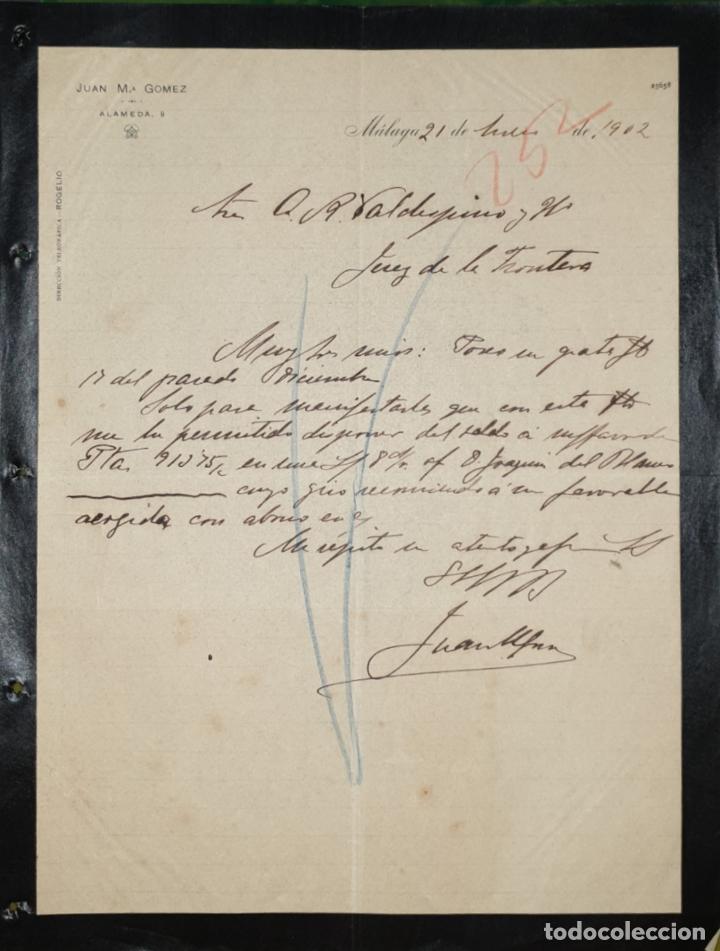 JUAN M.ª GOMEZ
ALAMEDA, 9
25658
DIRECCIÓN TELEGRÁFICA - ROGELIO
Málaga 21 de de 1902
252
A. R. Valdespino y Hº
Jerez de la Frontera
Muy Sres mios: Poseo su grata
17 del pasado Diciembre
Solo para manifestarles que con esta
me he permitido disponer del saldo á mi favor de
Pta 913'75 en una 8 d/v. c/ D. Joaquin del
cuyo giro recomiendo á su favorable
acogida con abono en
Me repito su atento y
Juan
todocoleccion